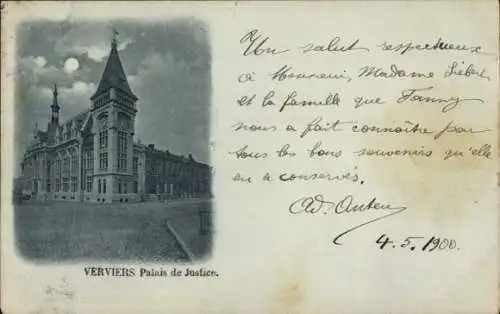 Un salut respectueux
à Monsieur, Madame Liebert
et la famille que Fanny
nous a fait connaître par
tous les bons souvenirs qu'elle
en a conservés.
Ad. Auten
4.5.1900.
VERVIERS Palais de Justice.